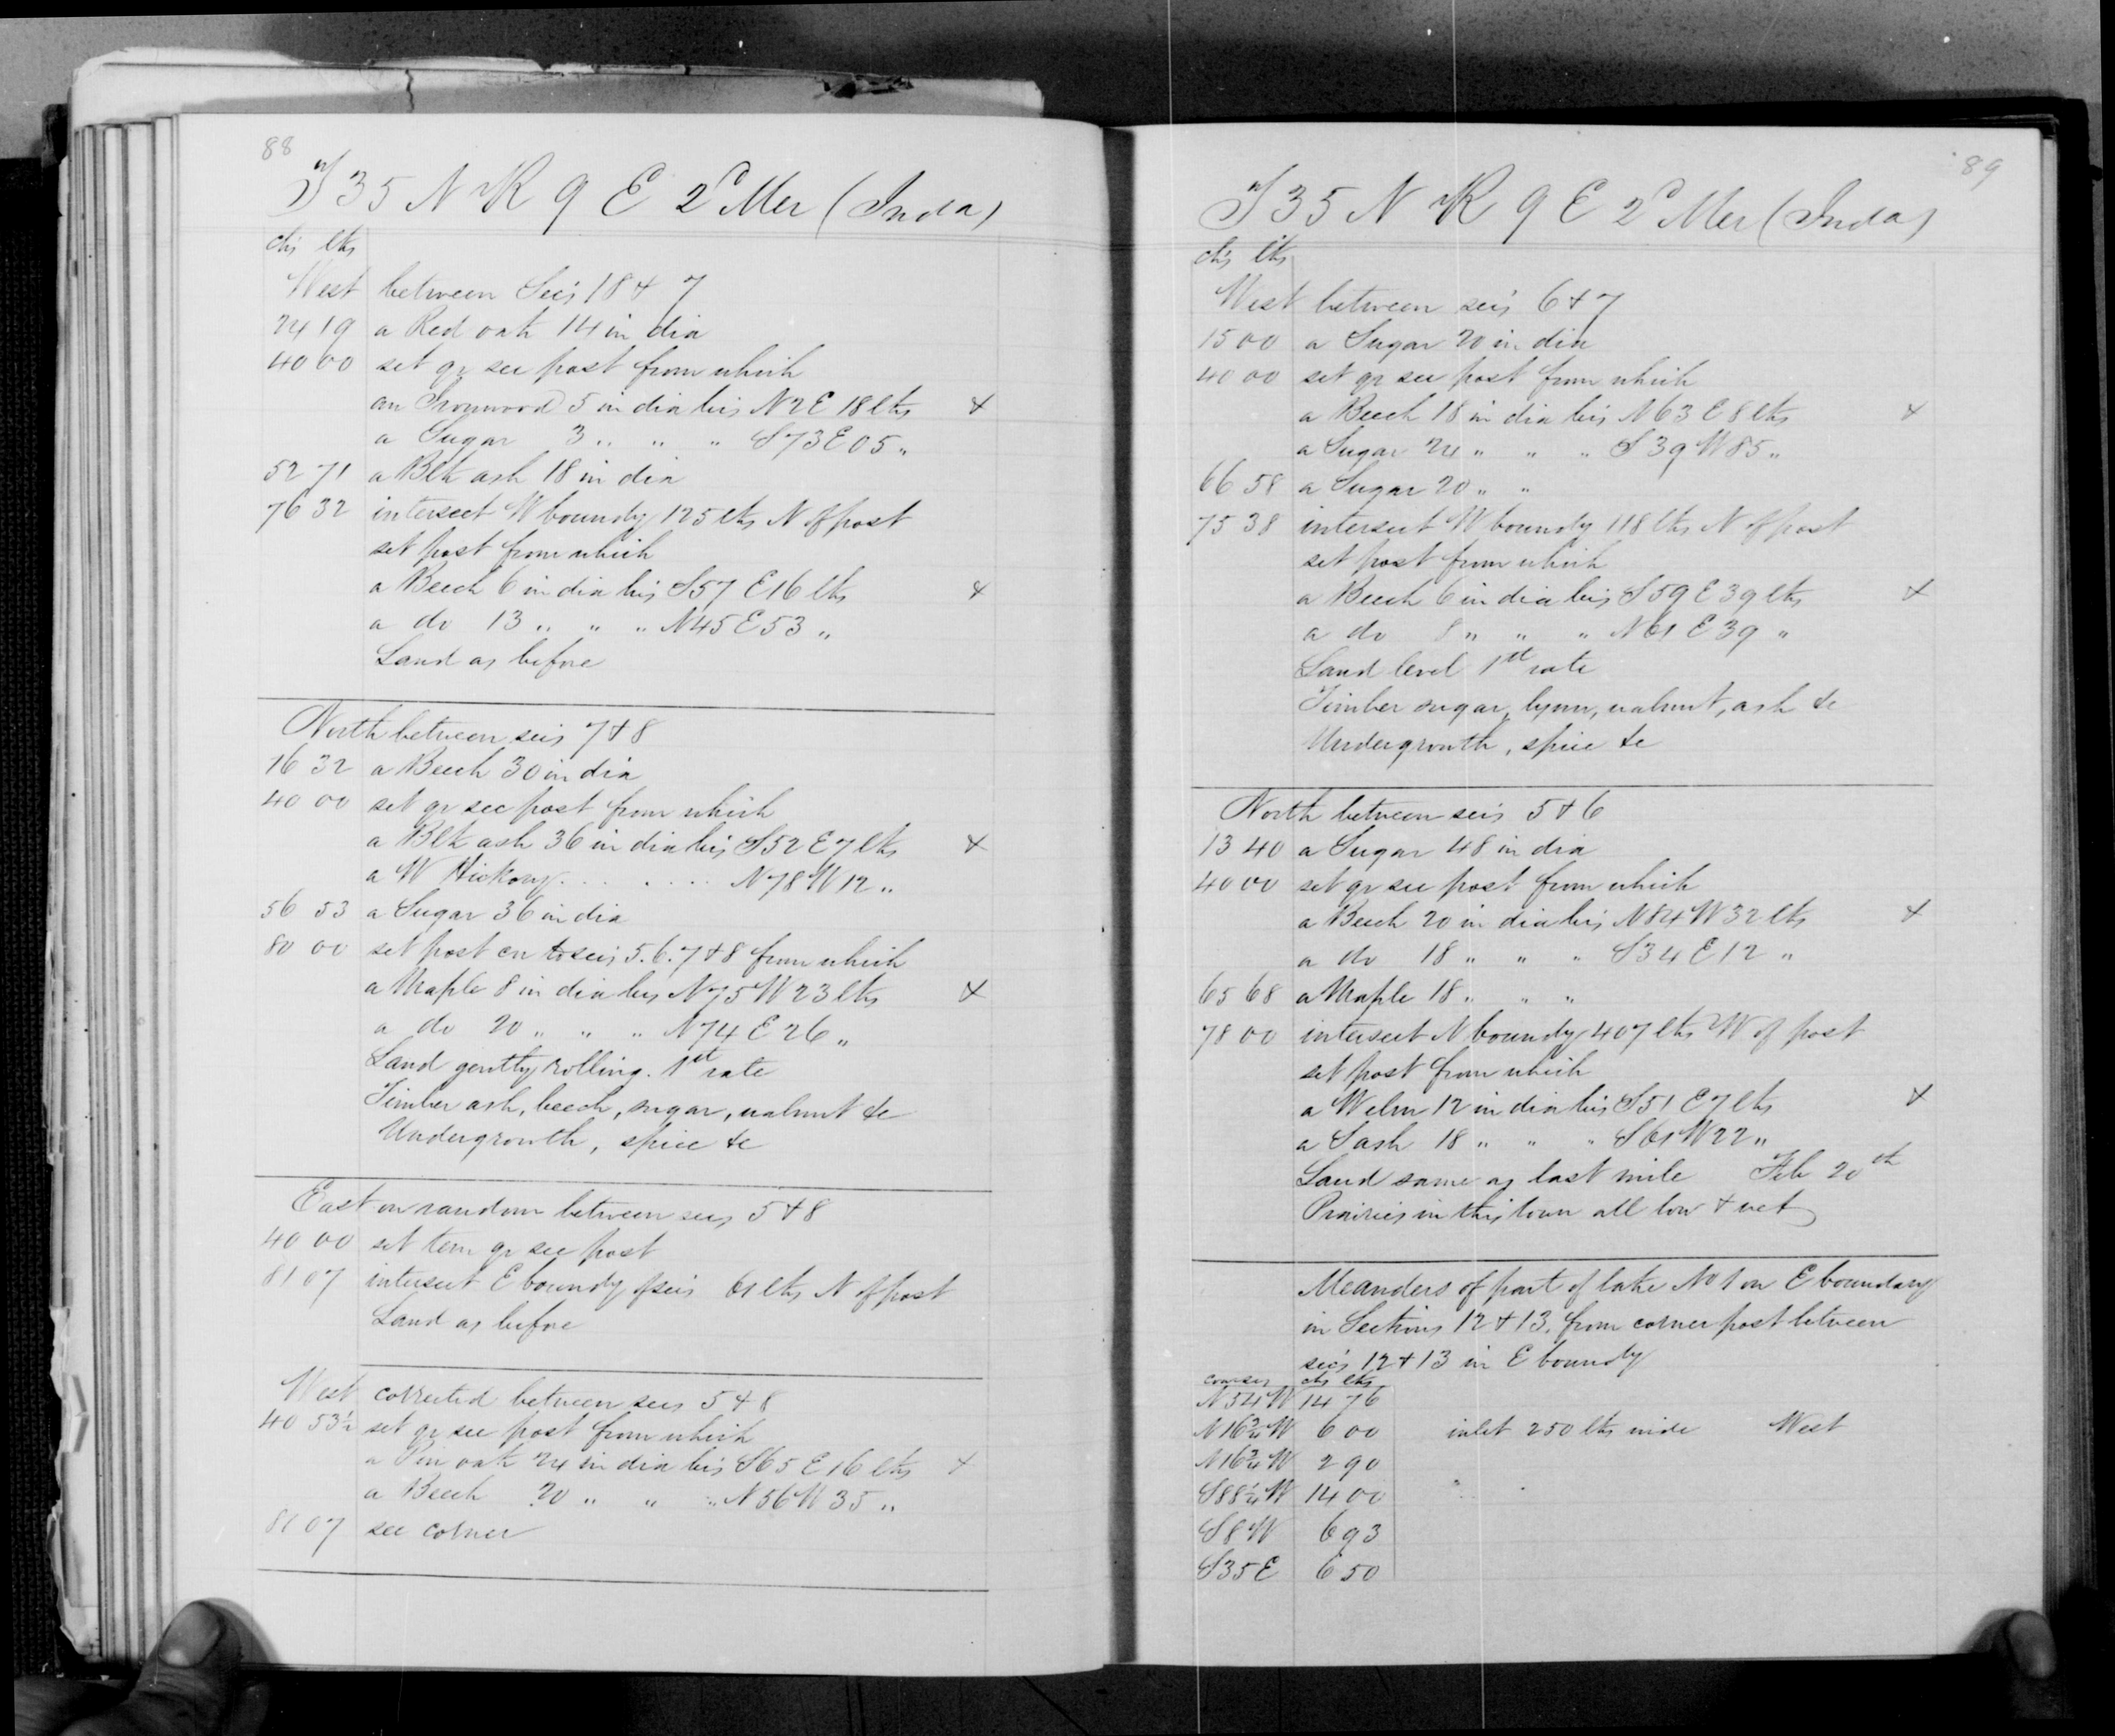 88
T 35 N R 9 E 2d Mer (Inda)
chs lks
West between Secs 18 & 7
24 19 a Red oak 14 in dia
40 00 set qr sec post from which
an Ironwood 5 in dia brs N2E 18 lks +
a Sugar 3 „ „ „ S73E 05 „
52 71 a Blk ash 18 in dia
76 32 intersect W boundy 125 lks N of post
set post from which
a Beech 6 in dia brs S57 E16 lks +
a do 13 „ „ „ N45E53 „
Land as before
North between secs 7 & 8
16 32 a Beech 30 in dia
40 00 set qr sec post from which
a Blk ash 36 in dia brs S52 E7 lks +
a W Hickory . . . . . . . N78W12 „
56 53 a Sugar 36 in dia
80 00 set post cor to secs 5.6.7 & 8 from which
a Maple 8 in dia brs N75W23 lks +
a do 20 „ „ „ N74E26 „
Land gently rolling. 1st rate
Timber ash, beech, sugar, walnut &c
Undergrowth, spice &c
East on random between secs 5 & 8
40 00 set tem qr sec post
81 07 intersect E boundy of secs 61 lks N of post
Land as before
West corrected between secs 5 & 8
40 53½ set qr sec post from which
a Pin oak 24 in dia brs S65E16 lks +
a Beech 20 „ „ „ N56W35 „
81 07 sec corner
89
T 35 N R 9 E 2d Mer (Inda)
chs lks
West between secs 6 & 7
15 00 a Sugar 20 in dia
40 00 set qr sec post from which
a Beech 18 in dia brs N63E8 lks +
a Sugar 24 „ „ „ S39W85 „
66 58 a Sugar 20 „ „
75 38 intersect W boundy 118 lks N of post
set post from which
a Beech 6 in dia brs S59E39 lks +
a do 8 „ „ „ N61E39 „
Land level 1st rate
Timber sugar, lynn, walnut, ash &c
Undergrowth, spice &c
North between secs 5 & 6
13 40 a Sugar 48 in dia
40 00 set qr sec post from which
a Beech 20 in dia brs N84W32 lks +
a do 18 „ „ „ S34E12 „
65 68 a Maple 18 „ „ „
78 00 intersect N boundy 407 lks W of post
set post from which
a W elm 12 in dia brs S51E7 lks +
a S ash 18 „ „ „ S61W22 „
Land same as last mile Feb 20th
Prairies in this town all low & wet
Meanders of part of lake No 1 on E boundary
in Sections 12 & 13. from corner post between
secs 12 & 13 in E boundy
courses chs lks
N54W 14 76
N16¾W 6 00 inlet 250 lks wide West
N16¾W 2 90
S88¼W 14 00
S8W 6 93
S35E 6 50